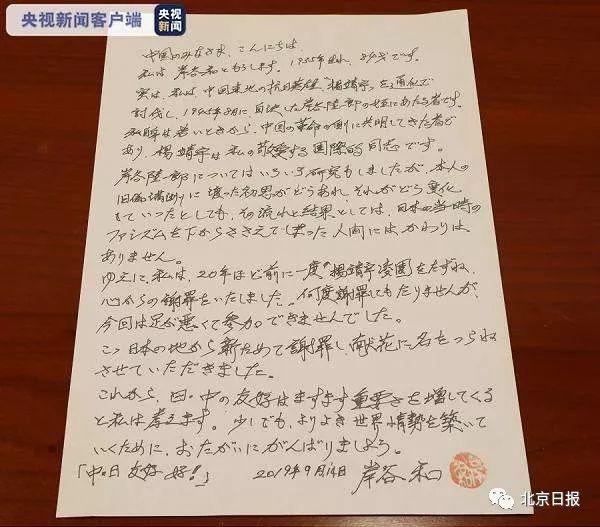 央视新闻客户端
央视新闻
中国のみなさま、こんにちは。
私は岸谷和ともうします。1955年生れ、64才です。
実は、私は中国東北の抗日英雄“楊靖宇”を通化で
討伐し、1945年8月に自決した岸谷隆一郎の姪にあたる者です。
私自身は若いときから、中国の革命の側に共鳴してきた者で
あり、楊靖宇は私の敬愛する国際的同志です。
岸谷隆一郎についてはいろいろ研究もしましたが、本人の
旧偽満州に渡った初思がどうあれ、それがどう変化
していったとしても、その流れと結果としては、日本の当時の
ファシズムを下からささえてしまった人間にはかわりは
ありません。
ゆえに、私は、20年ほど前に一度“楊靖宇陵園”をたずね、
心からの謝罪をいたしました。何度謝罪してもたりませんが、
今回は足が悪くて参加できませんでした。
この日本の地から新ためて謝罪し、献花に名をつらね
させていただきました。
これから、日・中の友好はますます重要さを増してくる
と私は考えます。少しでも、よりよき世界情勢を築いて
いくために、おたがいにがんばりましょう。
「中・日友好好!」 2019年9月14日 岸谷 和
北京日报